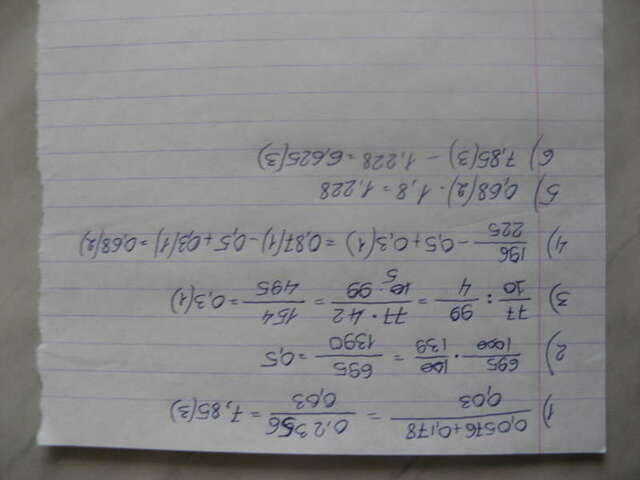 1) (0,0576+0,178)/0,03 = 0.2356/0,03 = 7,85(3)
2) 695/1000 · 100/139 = 695/1390 = 0,5
3) 77/10 : 99/4 = 77·42/10·99 5 = 154/495 = 0,3(1)
4) 196/225 - 0,5 + 0,3(1) = 0,87(1) - 0,5 + 0,3(1) = 0,68(2)
5) 0,68(2) · 1,8 = 1,228
6) 7,85(3) - 1,228 = 6,625(3)